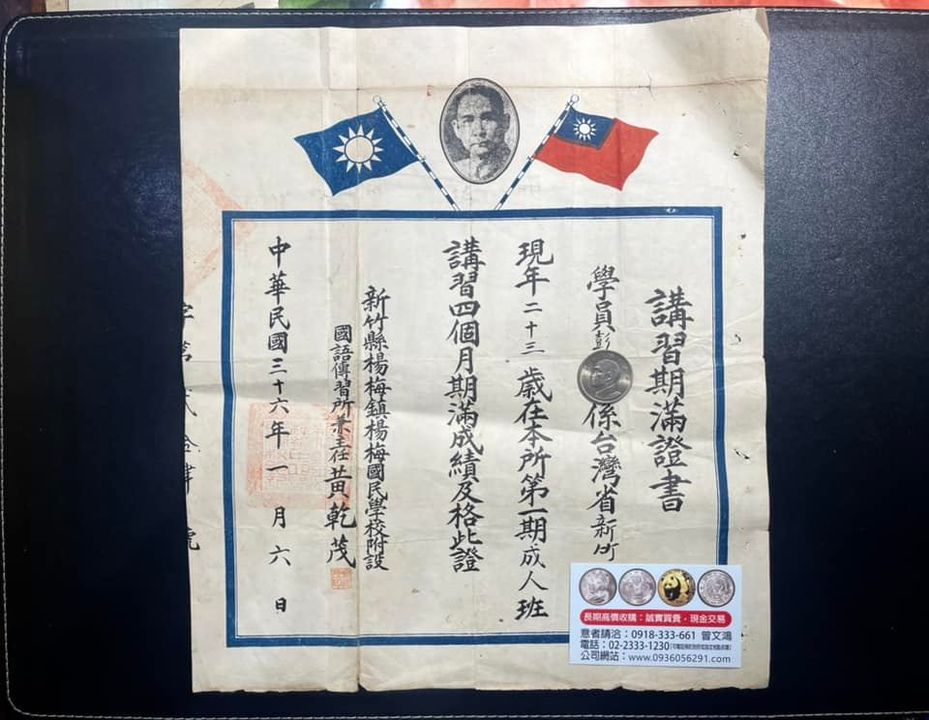 講習期滿證書
學員彭
係台灣省新竹
現年二十三歲在本所第一期成人班
講習四個月期滿成績及格此證
新竹縣楊梅鎮楊梅國民學校附設
國語傳習所兼主任黃乾茂
中華民國三十六年一月六日
字第
號
長期高價收購：誠實買賣，現金交易
意者請洽：0918-333-661 曾文鴻
電話：02-2333-1230
公司網站：www.0936056291.com